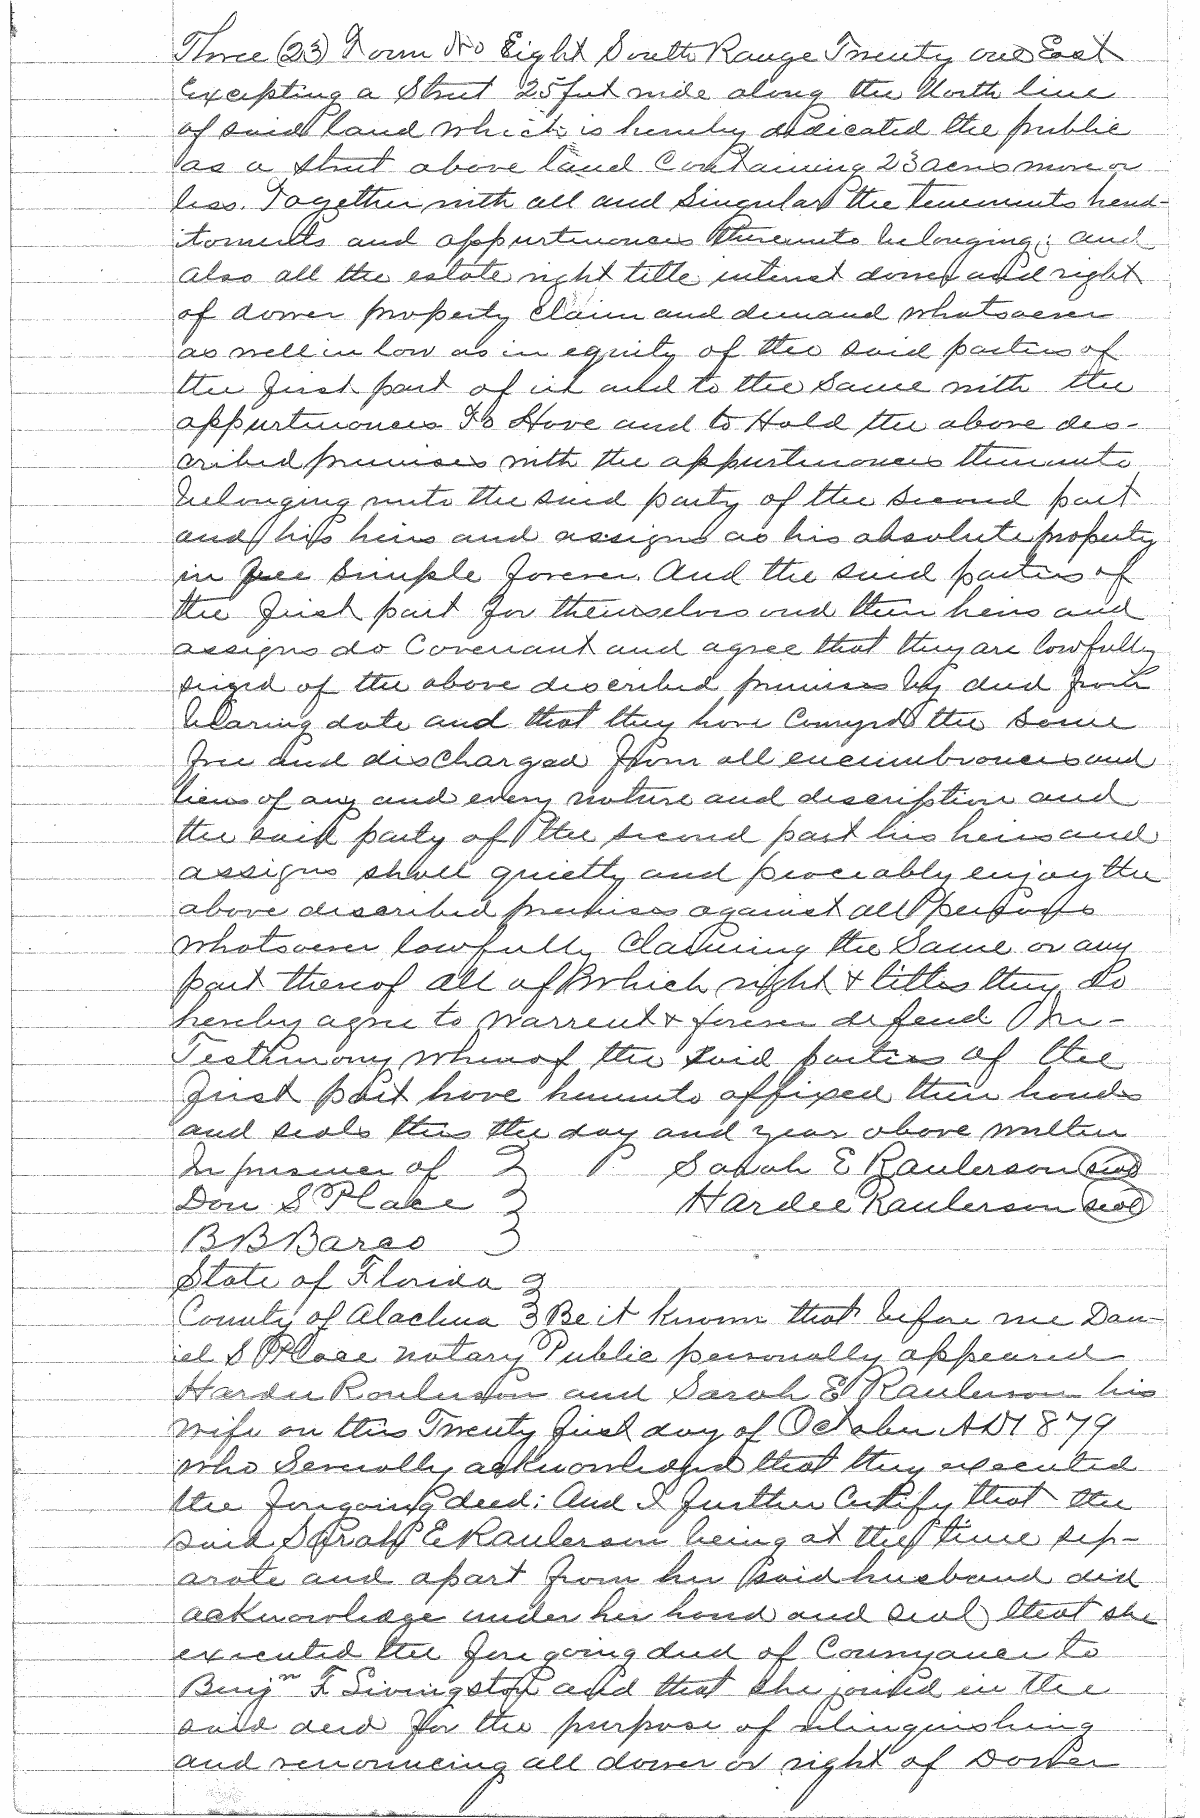 Three (23) Town No Eight South Range Twenty one East
Excepting a Street 25 feet wide along the North line
of said land which is hereby dedicated the public
as a street above land Containing 23 acres more or
less. Together with all and Singular the tenements hered-
itaments and appurtenances thereunto belonging; and
also all the estate right title interest dower and right
of dower property claim and demand whatsoever
as well in law as in equity of the said parties of
the first part of in and to the same with the
appurtenances To Have and to Hold the above des-
cribed premises with the appurtenances thereunto
belonging unto the said party of the second part
and his heirs and assigns as his absolute property
in fee simple forever. And the said parties of
the first part for themselves and their heirs and
assigns do Covenant and agree that they are lawfully
seized of the above described premises by deed
bearing date and that they have Conveyed the same
free and discharged from all encumbrances and
liens of any and every nature and description and
the said party of the second part his heirs and
assigns shall quietly and peaceably enjoy the
above described premises against all persons
whatsoever lawfully Claiming the Same or any
part thereof all of which right & titles they do
hereby agree to warrent & forever defend In-
Testimony whereof the said parties of the
first part have hereunto affixed their hands
and seals this the day and year above written
In presence of Sarah E Raulerson seal
Don S Place Hardee Raulerson seal
B B Barco
State of Florida
County of Alachua Be it known that before me Dan-
iel S Place notary Public personally appeared
Hardee Raulerson and Sarah E Raulerson his
wife on this Twenty first day of October AD 1879
who Severally acknowledged that they executed
the foregoing deed; And I further Certify that the
said Sarah E Raulerson being at the time sep-
arate and apart from her said husband did
acknowledge under her hand and seal that she
executed the foregoing deed of Conveyance to
Benjn F Livingston and that she joined in the
said deed for the purpose of relinquishing
and renouncing all dower or right of Dower